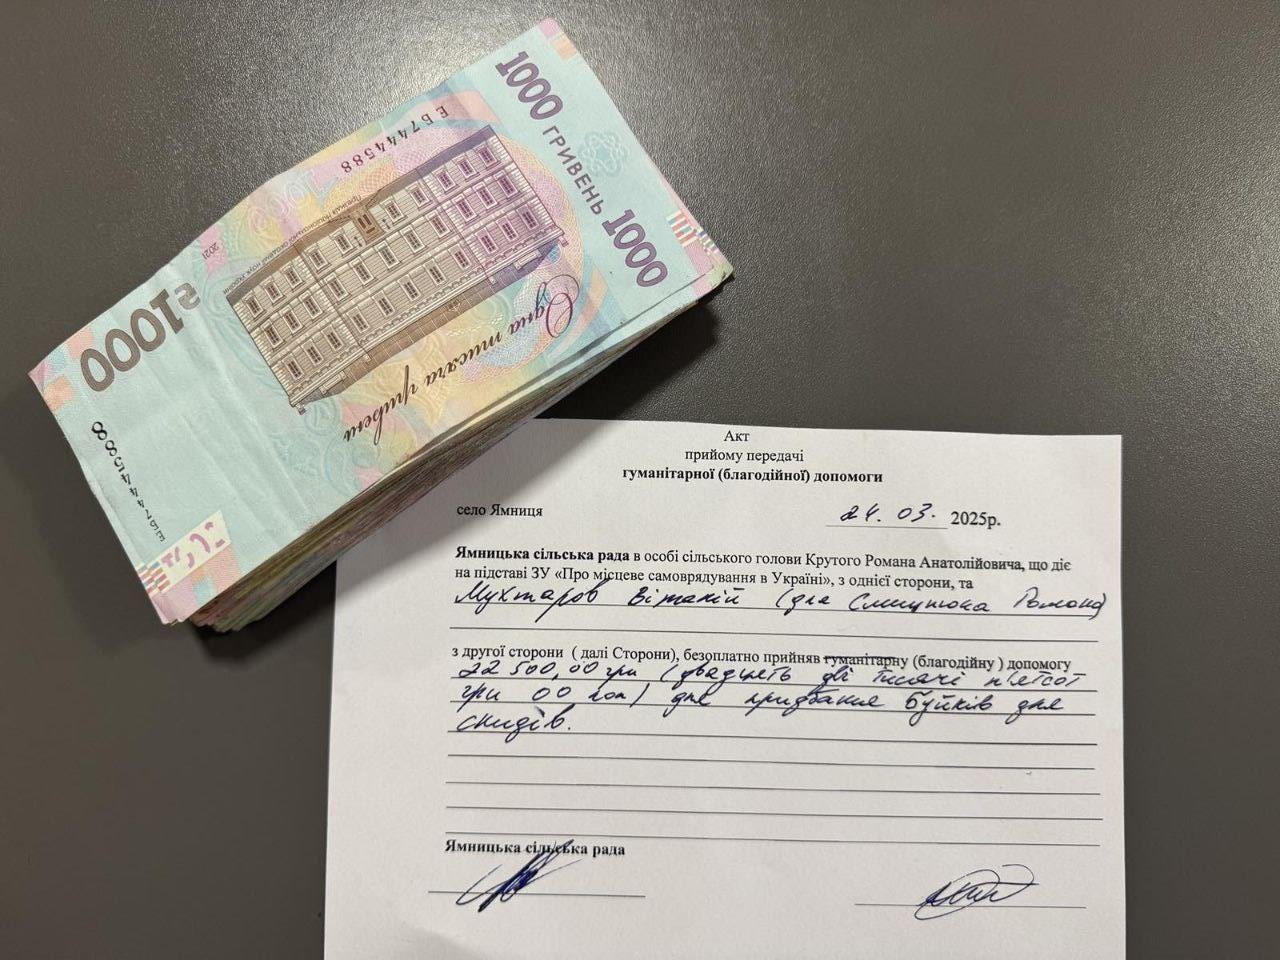 1000 ГРИВЕНЬ 1000
ЕБ7444588
2021
Одна тисяча гривень
₴1000
ЕБ7444588
Акт
прийому передачі
гуманітарної (благодійної) допомоги
село Ямниця
24. 03. 2025р.
Ямницька сільська рада в особі сільського голови Крутого Романа Анатолійовича, що діє
на підставі ЗУ «Про місцеве самоврядування в Україні», з однієї сторони, та
Мухтаров Віталій (для Романа)
з другої сторони ( далі Сторони), безоплатно прийняв гуманітарну (благодійну ) допомогу
22 500,00 грн (двадцять дві тисячі п'ятсот
грн 00 коп) для придбання буйків для
скидів.
Ямницька сільська рада